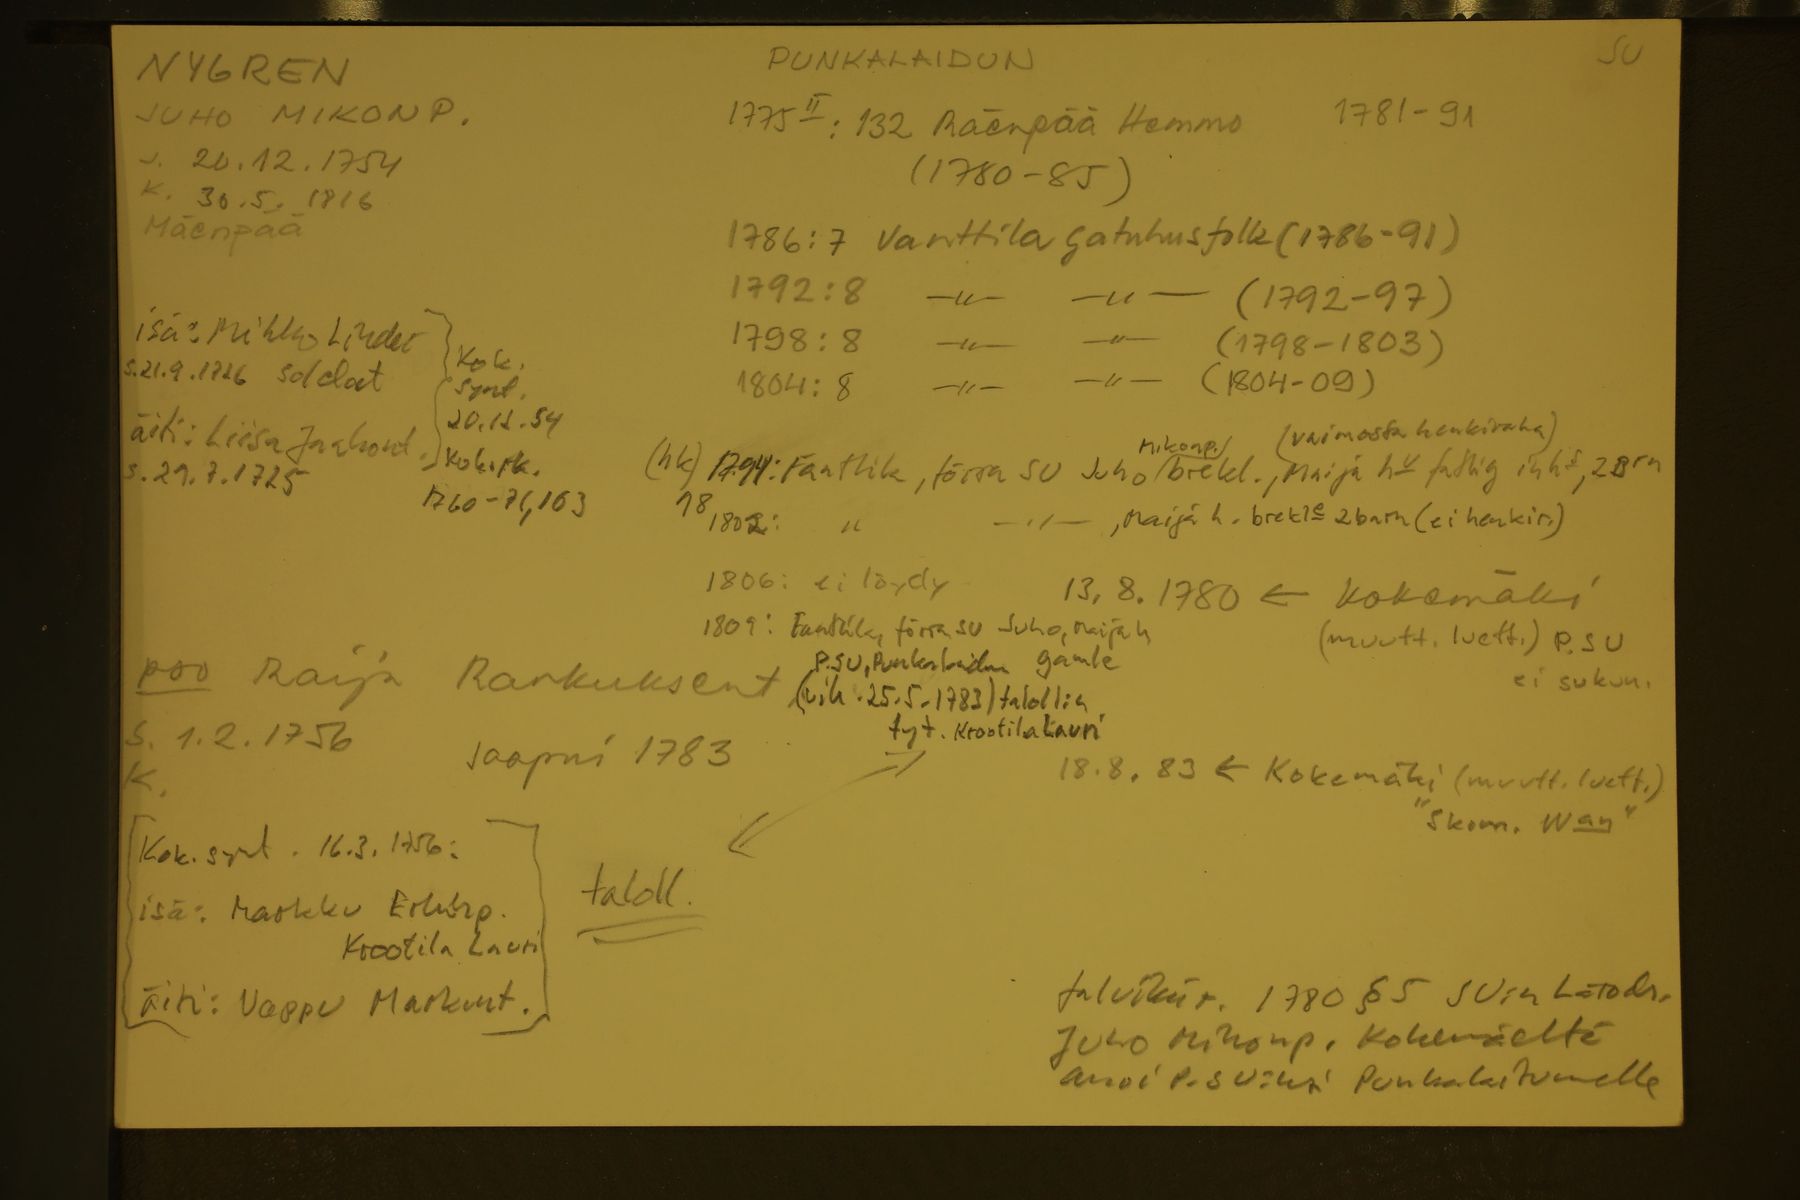 NYGREN
JUHO MIKONP.
s. 20.12.1754
k. 30.5. 1816
Mäenpää
PUNKALAIDUN
SU
1775 II: 132 Mäenpää Hemmo 1781-91
(1780-85)
1786: 7 Vanttila gatuhusfolk (1786-91)
1792: 8 —〃— —〃— (1792-97)
1798: 8 —〃— —〃— (1798-1803)
1804: 8 —〃— —〃— (1804-09)
isä: Mihko Linder
s. 21.9.1726 soldat
äiti: Liisa Jaakont.
s. 29.7.1725
Kok.
synt.
20.12.54
Kok.rk.
1760-71, 163
(hk) 1794: Fanttila, förra SU Juho Mikonp. brekl., Maija hu fattig inhs, 2 Brn
(vaimosta henkiraha)
1802: 〃 —〃— , Maija h. brekle 2 barn (ei henkir.)
18
1806: ei löydy
1809: Fanttila, förra SU Juho, Maija h
13.8.1780 ← Kokemäki
(muutt. luett.) P.SU
ei sukun.
pso Maija Markuksent
P.SU, Punkalaidun gamle
(vih. 25.5.1783) talollin
tyt. Krootila Lauri
s. 1.2.1756
saapui 1783
k.
18.8.83 ← Kokemäki (muutt. luett.)
"Skom. Wan"
Kok. synt. 16.3.1756:
isä: Markku Erkinp.
Krootila Lauri
äiti: Vappu Markunt.
taloll.
talvikär. 1780 §5 SU:n
Juho Mikonp. Kokemäeltä
anoi P.SU:ksi Punkalaitumelle